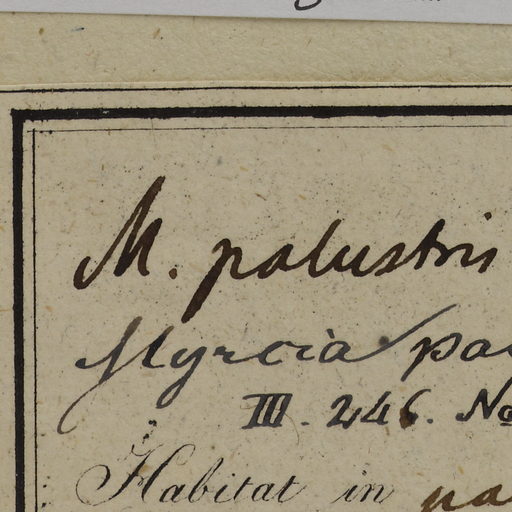 M. palustris
Myrcia
III. 246.
Habitat in